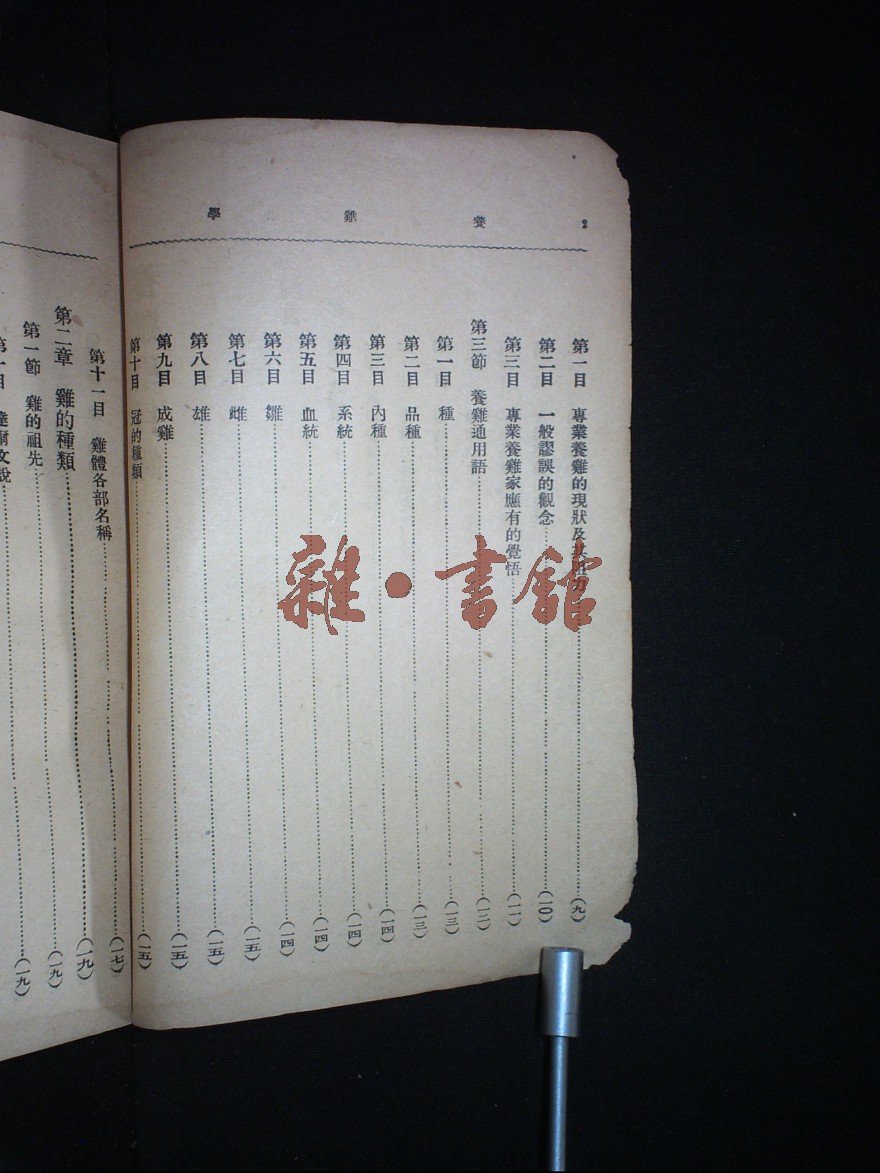 2 養雞學
第一目 專業養雞的現狀及其阻力 (九)
第二目 一般謬誤的觀念 (一〇)
第三目 專業養雞家應有的覺悟 (一一)
第三節 養雞通用語 (一二)
第一目 種 (一三)
第二目 品種 (一三)
第三目 內種 (一四)
第四目 系統 (一四)
第五目 血統 (一四)
第六目 雛 (一四)
第七目 雌 (一五)
第八目 雄 (一五)
第九目 成雞 (一五)
第十目 冠的種類 (一五)
第十一目 雞體各部名稱 (一七)
第二章 雞的種類 (一九)
第一節 雞的祖先 (一九)
第一目 達爾文說 (一九)
雜·書館